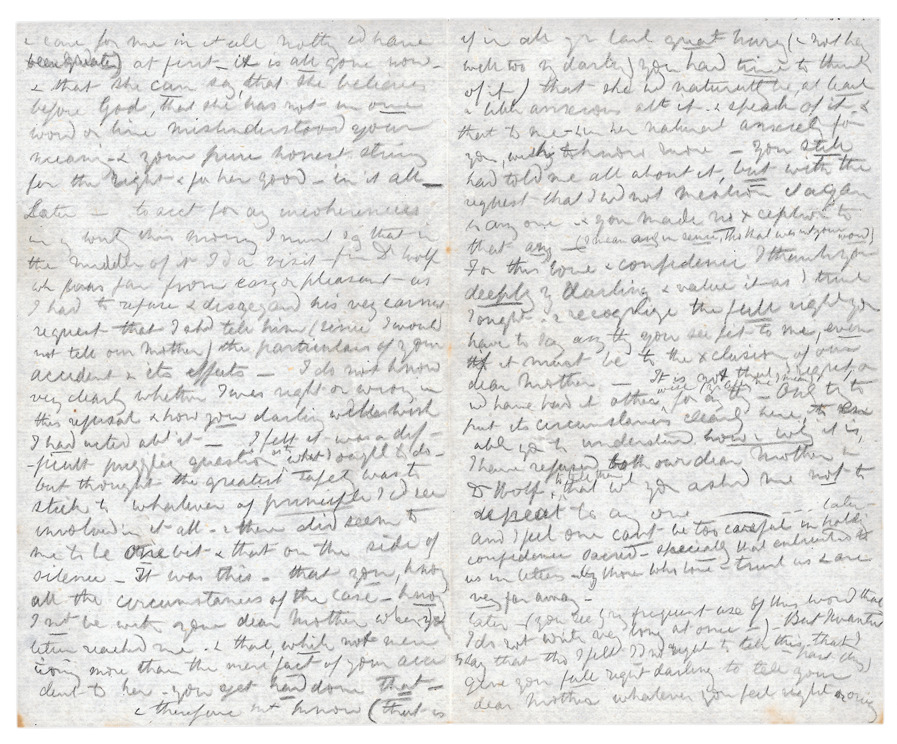 & care for me in it all nothg cd have
been greater) at first - it is all gone now -
& that she can say that she believes
before God, that she has not in one
word or line misunderstood your
meang - & your pure honest strivg
for the Right & for her good - in it all -
Later - to acct for any incoherences
in my writg this morng I must say that in
the middle of it I'd a visit - fm Dr Wolf
wh was far from easy or pleasant - as
I had to refuse & disregard his very earnest
request that I shd tell him (since I would
not tell our Mother) the particulars of your
accident & its effects - I do not know
very clearly whether I was right or wrong in
this refusal & how you darling wd have wish
I had acted abt it - I felt it was a dif-
-ficult puzzling question (what) ought to do -
but thought the greatest safety was to
stick to whatever of principle I cd see
involved in it all - & there did seem to
me to be one bit & that on the side of
silence - It was this - that you, know
all the circumstances of the case - know
I not be with your dear Mother when yr
letter reached me - & that, while not men
tioning more than the mere fact of your acci
dent to her - you yet had done that -
& therefore not know (that is
if in all yr last great hurry (& not
well too my darling) you had time to think
of it) that she wd naturally be, at least
a little anxious abt it - & speak of it &
that to me - & in her natural anxiety for
you, wish to know more - You still
had told me all about it, but with the
request that I wd not mention it again
to any one - & you made no xception to
that any - (I mean any in sense, tho' that was not your word)
For this love & confidence I thank you
deeply my darling & value it as I trust
I ought - & recognize the full right you
have to say any th you see fit to me, even
if it must be to the xclusion of our
dear Mother - It is not that I regret or
wd have had it otherwise for anythg - Only to
put its circumstances clearly here
able you to understand how & why it is,
I have refused both our dear Mother &
Dr Wolf, to tell them that wh you asked me not to
repeat to any one - - - - later -
and I feel one cant be too careful in holdg
confidence sacred - specially that entrusted to
us in letters - by those who love & trust us & are
very far away -
later - (you see my frequent use of this word that
I do not write very long at once) - But I want to
say that tho' I felt I'd no right to tell this, that I
give you full right darling to tell your
dear Mother whatever you feel right or